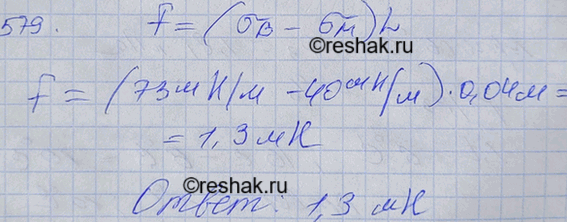 579. F = (σв – σм)L
©reshak.ru
F = (73мН/м – 40мН/м)·0,04м =
= 1,3мН
©reshak.ru
Ответ: 1,3 мН